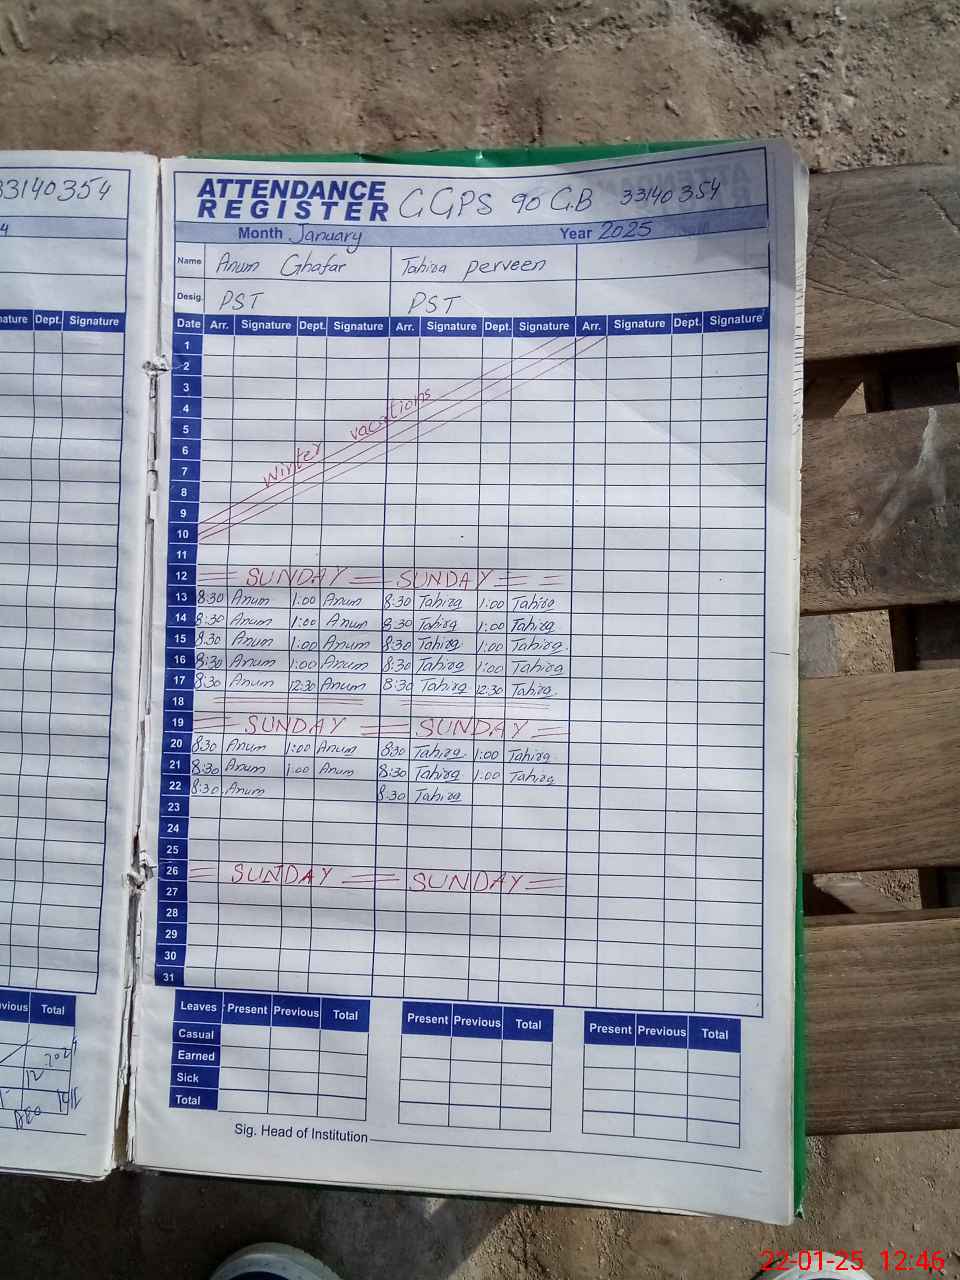 33140354
4
nature Dept. Signature
vious Total
12 2024
ATTENDANCE REGISTER GGPS 90 G.B 33140354
Month January Year 2025
Name Anum Ghafar Tahira perveen
Desig. PST PST
Date Arr. Signature Dept. Signature Arr. Signature Dept. Signature Arr. Signature Dept. Signature
1
2
3
4
5
6
7
8
9
10
Winter vacations
11
12 SUNDAY SUNDAY
13 8:30 Anum 1:00 Anum 8:30 Tahira 1:00 Tahira
14 8:30 Anum 1:00 Anum 8:30 Tahira 1:00 Tahira
15 8:30 Anum 1:00 Anum 8:30 Tahira 1:00 Tahira
16 8:30 Anum 1:00 Anum 8:30 Tahira 1:00 Tahira
17 8:30 Anum 12:30 Anum 8:30 Tahira 12:30 Tahira
18
19 SUNDAY SUNDAY
20 8:30 Anum 1:00 Anum 8:30 Tahira 1:00 Tahira
21 8:30 Anum 1:00 Anum 8:30 Tahira 1:00 Tahira
22 8:30 Anum 8:30 Tahira
23
24
25
26 SUNDAY SUNDAY
27
28
29
30
31
Leaves Present Previous Total Present Previous Total Present Previous Total
Casual
Earned
Sick
Total
Sig. Head of Institution
22-01-25 12:46